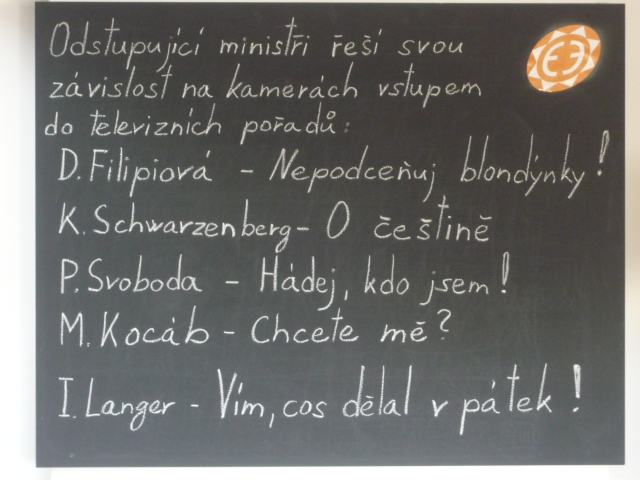 Odstupující ministři řeší svou
závislost na kamerách vstupem
do televizních pořadů:
D. Filipiová - Nepodceňuj blondýnky!
K. Schwarzenberg - O češtině
P. Svoboda - Hádej, kdo jsem!
M. Kocáb - Chcete mě?
I. Langer - Vím, cos dělal v pátek!